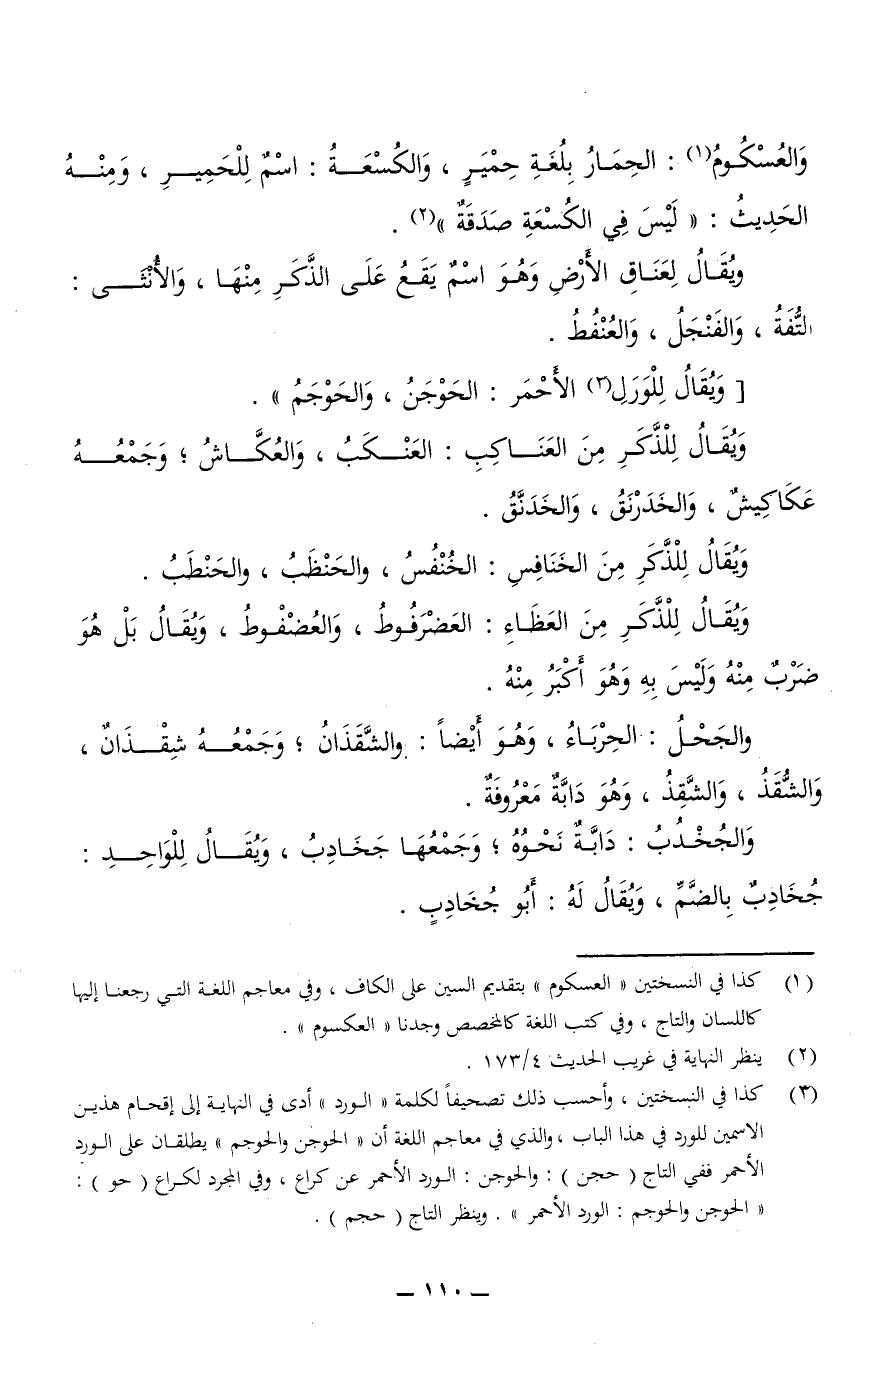 وَالعُسْكُومُ(١) : الحِمَارُ بِلُغَةِ حِمْيَرٍ ، وَالكُسْعَةُ : اسْمٌ لِلْحَمِيرِ ، وَمِنْهُ
الحَدِيثُ : « لَيْسَ فِي الكُسْعَةِ صَدَقَةٌ »(٢) .
ويُقَالُ لِعَنَاقِ الأَرْضِ وَهُوَ اسْمٌ يَقَعُ عَلَى الذَّكَرِ مِنْهَا ، وَالأُنْثَى :
التُّفَةُ ، وَالفَنْجَلُ ، وَالعُنْفُطُ .
[ وَيُقَالُ لِلْوَرَلِ(٣) الأَحْمَر : الحَوْجَنُ ، وَالحَوْجَمُ » .
وَيُقَالُ لِلْذَّكَرِ مِنَ العَنَاكِبِ : العَنْكَبُ ، وَالعُكَّاشُ ؛ وَجَمْعُهُ
عَكَاكِيشٌ ، وَالخَدَرْنَقُ ، وَالخَدَنَّقُ .
وَيُقَالُ لِلْذَّكَرِ مِنَ الخَنَافِسِ : الخُنْفُسُ ، والحَنْظَبُ ، والحَنْطَبُ .
وَيُقَالُ لِلْذَّكَرِ مِنَ العَظَاءِ : العَضْرَفُوطُ ، وَالعُضْفُوطُ ، وَيُقَالُ بَلْ هُوَ
ضَرْبٌ مِنْهُ وَلَيْسَ بِهِ وَهُوَ أَكْبَرُ مِنْهُ .
والجَحْلُ : الحِرْبَاءُ ، وَهُوَ أَيْضاً : والشَّقَذَانُ ؛ وَجَمْعُهُ شِقْذَانٌ ،
وَالشُّقَذُ ، وَالشَّقِذُ ، وَهُوَ دَابَّةٌ مَعْرُوفَةٌ .
وَالجُخْدُبُ : دَابَّةٌ نَحْوُهُ ؛ وَجَمْعُهَا جَخَادِبُ ، وَيُقَالُ لِلْوَاحِدِ :
جُخَادِبٌ بِالضَّمِّ ، وَيُقَالُ لَهُ : أَبُو جُخَادِبٍ .
(١) كذا في النسختين « العسكوم » بتقديم السين على الكاف ، وفي معاجم اللغة التي رجعنا إليها
كاللسان والتاج ، وفي كتب اللغة كالمخصص وجدنا « العكسوم » .
(٢) ينظر النهاية في غريب الحديث ١٧٣/٤ .
(٣) كذا في النسختين ، وأحسب ذلك تصحيفاً لكلمة « الورد » أدى في النهاية إلى إقحام هذين
الاسمين للورد في هذا الباب ، والذي في معاجم اللغة أن « الحوجن والحوجم » يطلقان على الورد
الأحمر ففي التاج ( حجن ) : والحوجن : الورد الأحمر عن كراع ، وفي المجرد لكراع ( حو ) :
« الحوجن والحوجم : الورد الأحمر » . وينظر التاج ( حجم ) .
— ١١٠ —